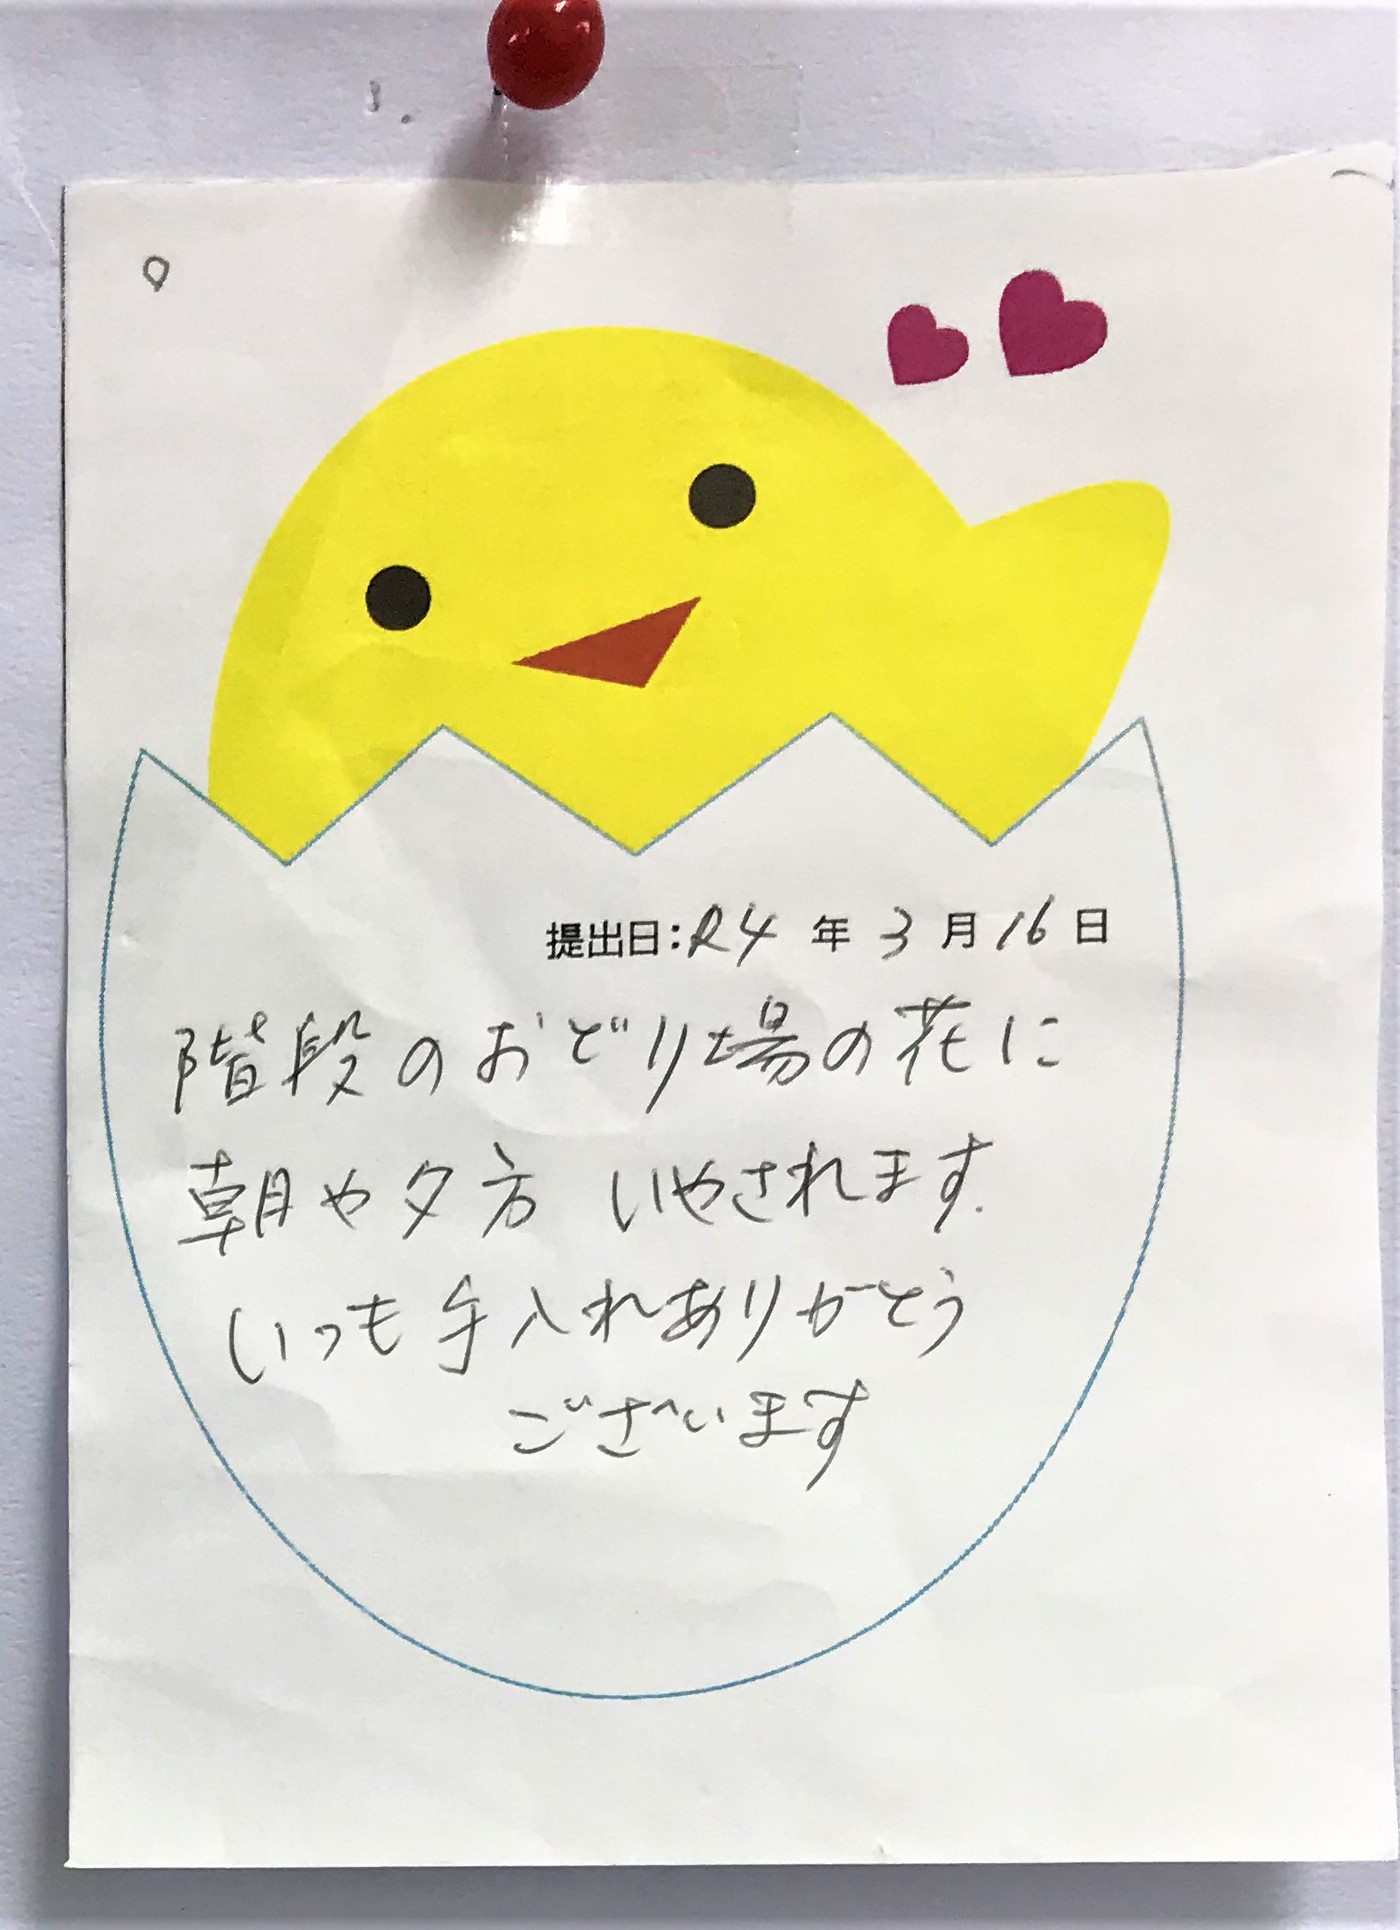 提出日:R4 年 3 月 16 日
階段のおどり場の花に
朝や夕方 いやされます.
いつも手入れありがとう
ございます